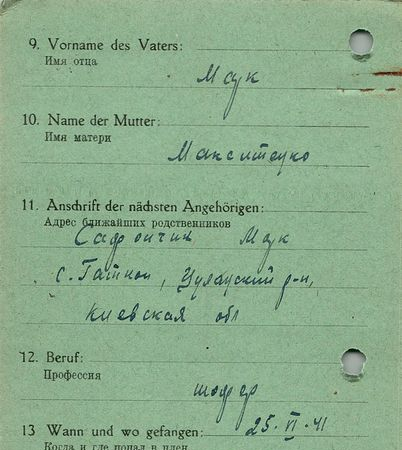 9. Vorname des Vaters:
Имя отца
Мак
10. Name der Mutter:
Имя матери
11. Anschrift der nächsten Angehörigen:
Адрес ближайших родственников
с. Гатное, р-н,
Киевская обл
12. Beruf:
Профессия
шофер
13 Wann und wo gefangen: 25. VI. 41
Когда и где попал в плен